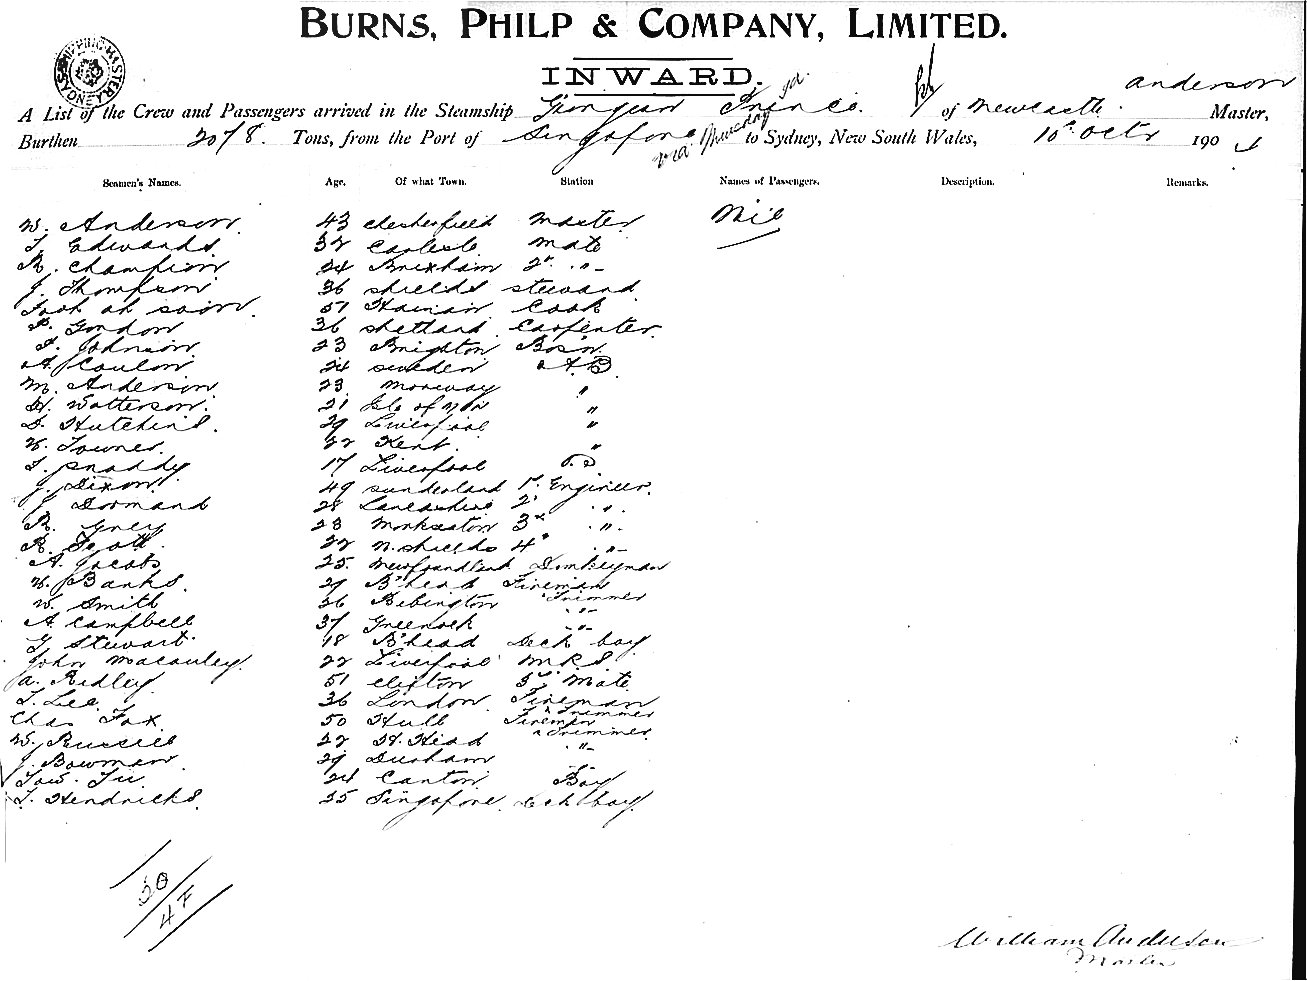 BURNS, PHILP & COMPANY, LIMITED.
INWARD.
SHIPPING MASTER SYDNEY
A List of the Crew and Passengers arrived in the Steamship of Newcastle. Anderson Master,
Burthen 2078. Tons, from the Port of Singapore via to Sydney, New South Wales, 10th Octr 190
Seamen's Names. Age. Of what Town. Station Names of Passengers. Description. Remarks.
W. Anderson. 43 Chesterfield Master Nil
T. Edwards 32 Carlisle Mate
R. Champion 24 Brixham 2nd "
J. Thompson 36 Shields Steward
51 Hainan Cook
Gordon 36 Shetland Carpenter.
Johnson 23 Brighton Bosn
A. Coulon 24 Sweden A.B.
M. Anderson 23 Norway "
Watterson. 21 Isle of Man "
Hutchins. 29 Liverpool "
Towner. 22 Kent. "
17 Liverpool
J. Dixon. 49 Sunderland 1st Engineer.
J. Dormand 28 Lancashire 2d "
R. Grey 28 Monkseaton 3rd "
R. Scott. 22 N. Shields 4th "
A. Jacobs 25. Newfoundland Donkeyman
Banks. 29 B'head Fireman
W. Smith 36 Bebington & Trimmer
A. Campbell 37 Greenock "
G. Stewart. 18 B'head Deck boy
John Macauley. 22 Liverpool M.R.S.
A. Ridley. 51 Clifton 3rd Mate
T. Lee. 36 London. Fireman & Trimmer
Chas Fox 50 Hull Fireman & Trimmer
W. Russell 22 Head "
J. Bowman. 29 Durham "
24 Canton Boy
Hendricks. 25 Singapore. Deck boy.
30
47
William Anderson
Master